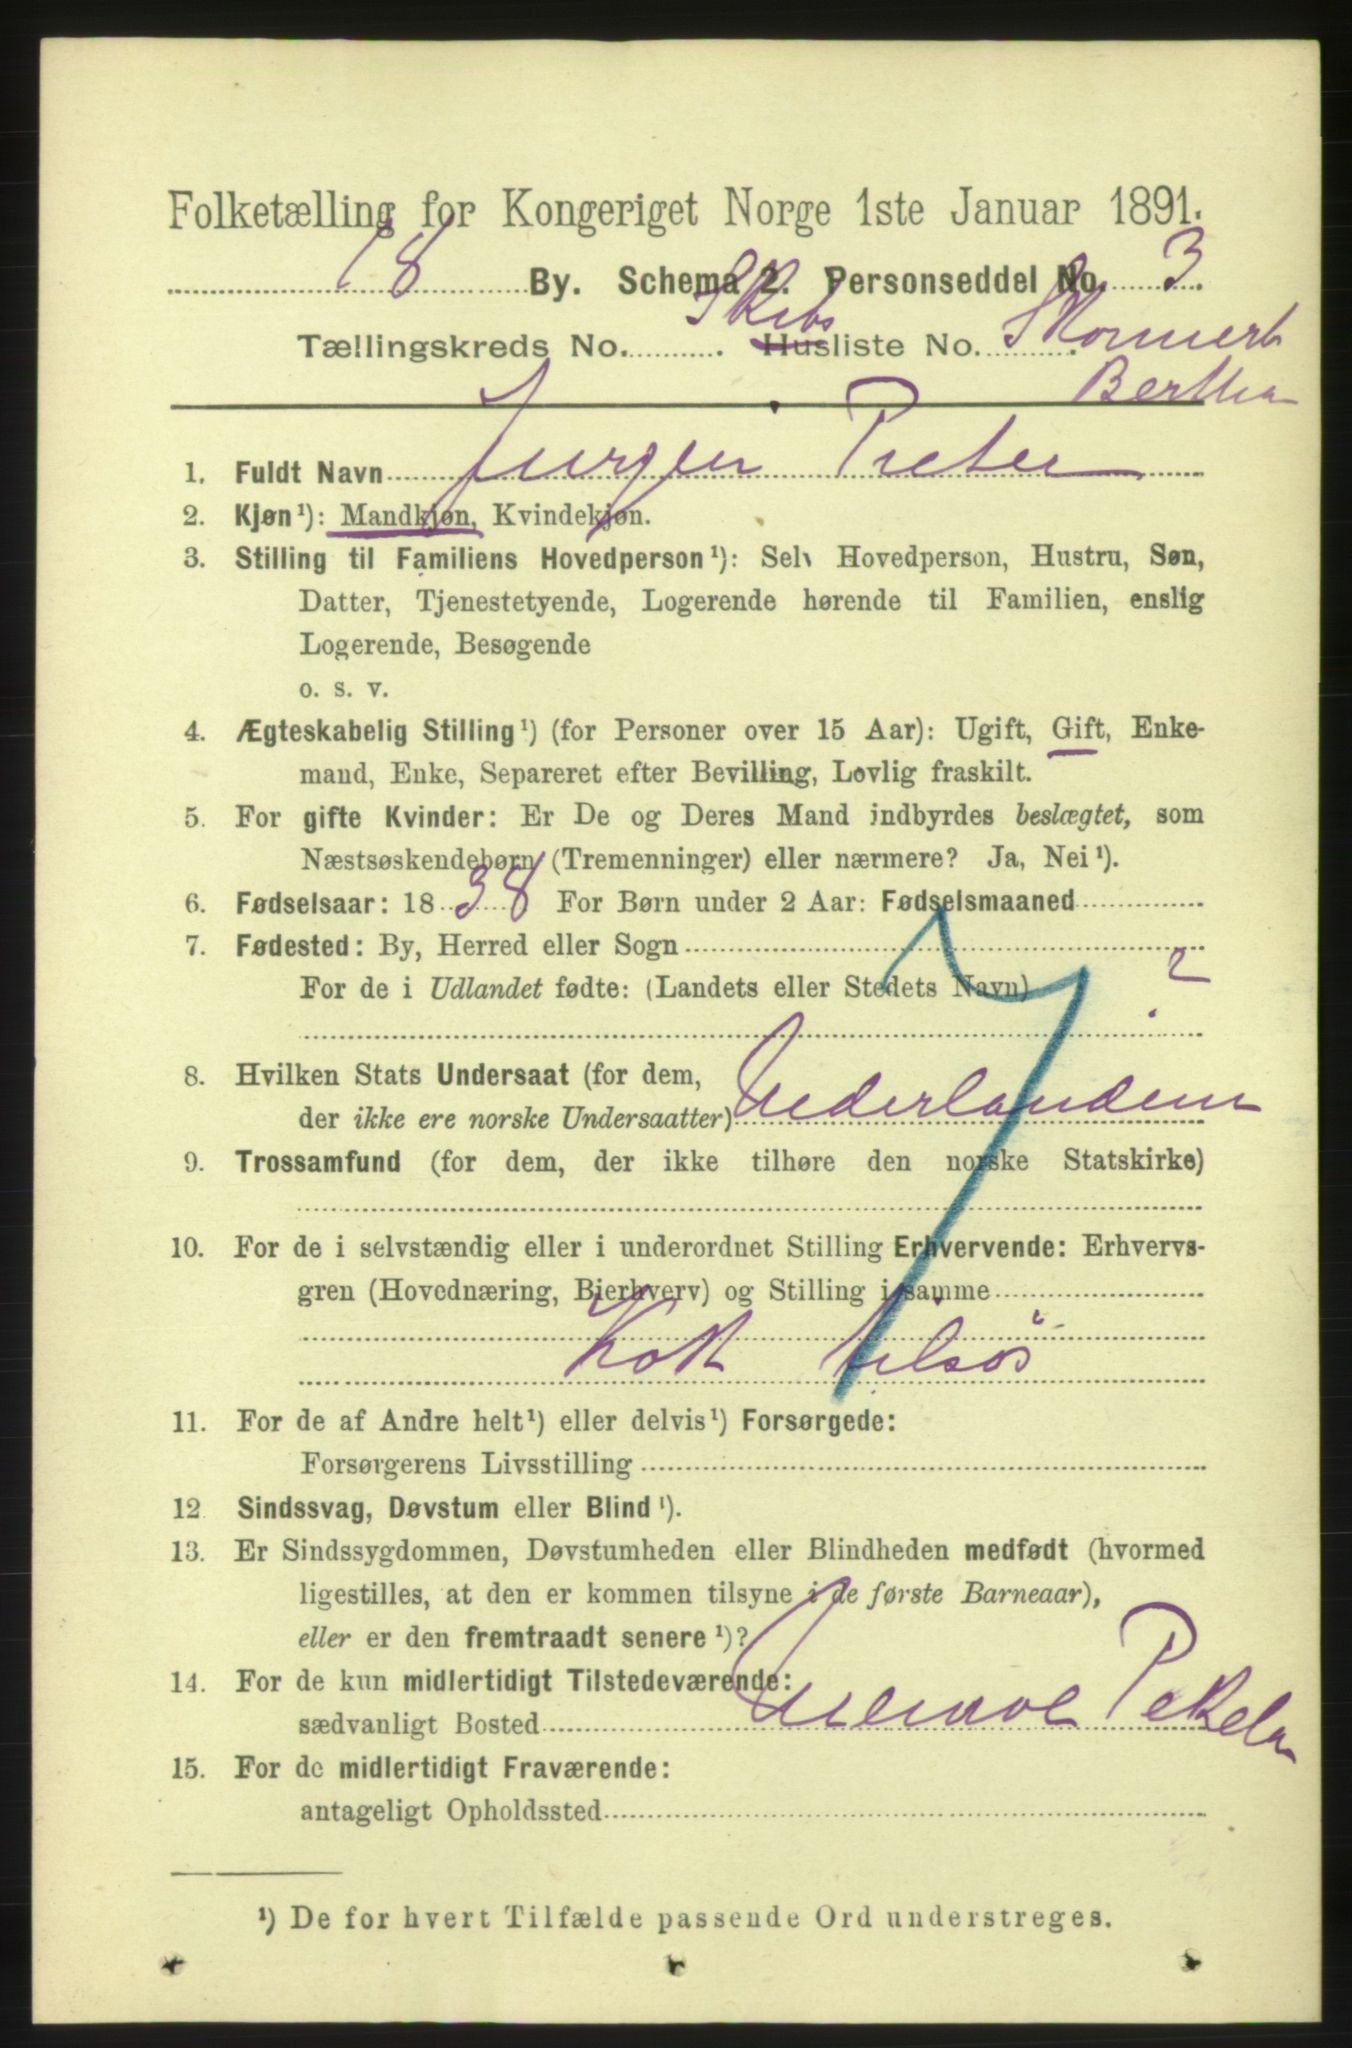 Folketælling for Kongeriget Norge 1ste Januar 1891.
18 By. Schema 2. Personseddel No. 3
Tællingskreds No. Skibs Husliste No. Skonnert
Bertha
1. Fuldt Navn Jurgen Pieter
2. Kjøn¹): Mandkjøn, Kvindekjøn.
3. Stilling til Familiens Hovedperson¹): Selv Hovedperson, Hustru, Søn,
Datter, Tjenestetyende, Logerende hørende til Familien, enslig
Logerende, Besøgende
o. s. v.
4. Ægteskabelig Stilling¹) (for Personer over 15 Aar): Ugift, Gift, Enke-
mand, Enke, Separeret efter Bevilling, Lovlig fraskilt.
5. For gifte Kvinder: Er De og Deres Mand indbyrdes beslægtet, som
Næstsøskendebørn (Tremenninger) eller nærmere? Ja, Nei¹).
6. Fødselsaar: 1838 For Børn under 2 Aar: Fødselsmaaned
7. Fødested: By, Herred eller Sogn
For de i Udlandet fødte: (Landets eller Stedets Navn) ?
8. Hvilken Stats Undersaat (for dem,
der ikke ere norske Undersaatter) Nederlandene
9. Trossamfund (for dem, der ikke tilhøre den norske Statskirke)
10. For de i selvstændig eller i underordnet Stilling Erhvervende: Erhvervs-
gren (Hovednæring, Bierhverv) og Stilling i samme
Kok tilsøs
7
11. For de af Andre helt¹) eller delvis¹) Forsørgede:
Forsørgerens Livsstilling
12. Sindssvag, Døvstum eller Blind¹).
13. Er Sindssygdommen, Døvstumheden eller Blindheden medfødt (hvormed
ligestilles, at den er kommen tilsyne i de første Barneaar),
eller er den fremtraadt senere¹)?
14. For de kun midlertidigt Tilstedeværende:
sædvanligt Bosted Pekela
15. For de midlertidigt Fraværende:
antageligt Opholdssted
¹) De for hvert Tilfælde passende Ord understreges.